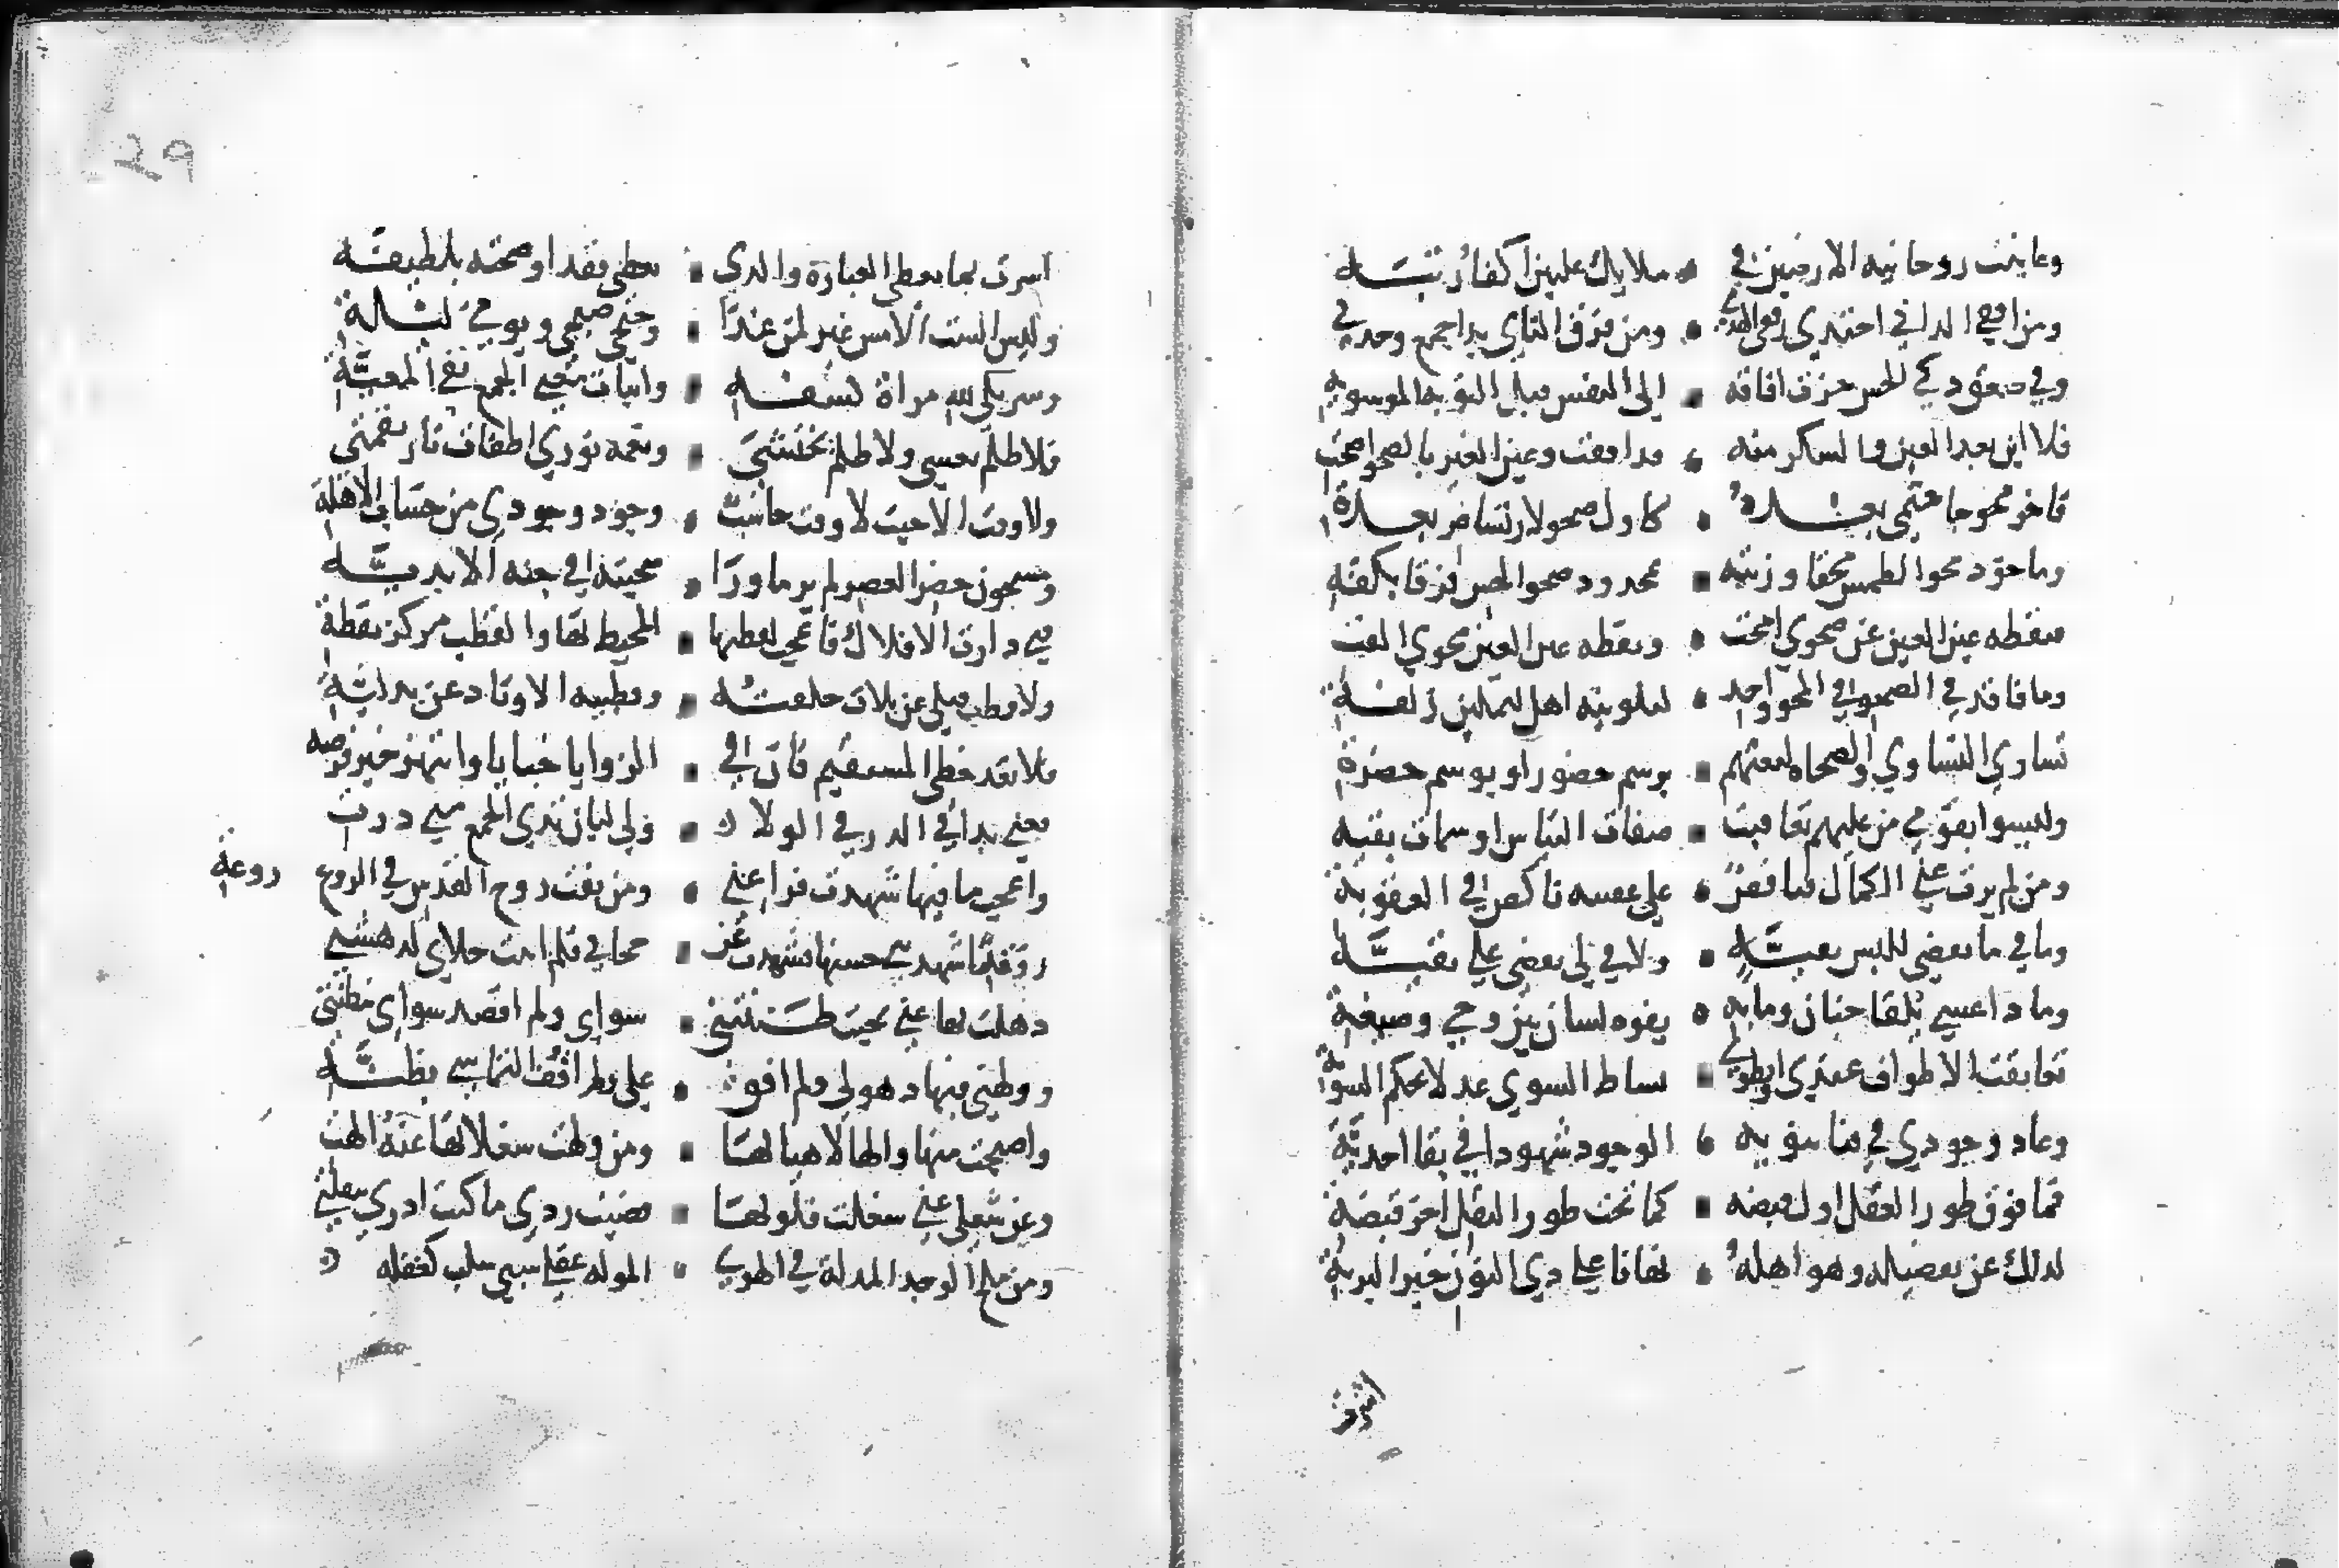 وعاينت روحانية الارضين في • ملايك عليين اكفا رتبه
ومن افقي الداني اجتدي رفقي الهدي • ومن فرقي الثاني بدا جمع وحدتي
وفي صعق دك الحس خرت افاقه • الي النفس قبل التوبه الموسويه
فلا اين بعد العين والسكر منه • قد افقت وعين الغين بالصحو اصحت
فاخر محو جا ختمي بعده • كاول صحو لارتسام بعدة
وماخوذ محو الطمس محقا وزنته • بمحدود صحو الحس فرقا بكفة
فنقطه عين الغين عن صحوي امحت • ونقطه عين العين محوي الغت
وما فاقد في الصحو في المحو واجد • لتلوينه اهل لتمكين زلفة
تساوي النشاوي والصحاه لنعتهم • برسم حضور او بوسم حضرة
وليسوا بقومي من عليهم تعاقبت • صفات التباس او سمات بقيه
ومن لم يرث عني الكمال فناقص • علي عقبيه ناكص في العقوبة
وما في ما يفضي للبس بقيه • ولا في لي يقضي علي بفية
وما ذا عسي يلقا جنان وما به • يفوه لسان بين وحي وصيغة
تعانقت الاطراف عندي وانطوي • بساط السوي عدلا بحكم السوية
وعاد وجودي في فنا ثنويه • الوجود شهودا في بقا احديه
فما فوق طور العقل اول فيضه • كما تحت طور النقل اخر قبضة
لذلك عن تفضيله وهو اهله • نهانا علي ذي النون خير البرية
اشرت
29
اشرت بما يعطي العبارة والذي • تغطي فقد اوضحته بلطيفة
وليس الست الامس غير لمن غدا • وجنحي صبحي ويومي ليلة
وسر بلي لله مراة كشفه • واثبات معني الجمع نفي المعية
فلا ظلم يغشي ولا ظلم يختشي • ونعمه نوري اطفات نار نقمتي
ولا وقت الا حيث لا وقت حاسب • وجود وجودي من حساب الاهلة
ومسجون حصر العصر لم ير ما ورا • سجيته في جنه الابديه
فبي دارت الافلاك فاعجب لقطبها • المحيط بها والقطب مركز نقطة
ولا قطب قبلي عن ثلاث خلفته • وقطبيه الاوتاد عن بدليه
فلا تعد خطي المستقيم فان في • الزوايا خبايا وانتهز خير فرصه
فعني بدا في الذر في الولا • ولي لبان ثدي الجمع مني درت
واعجب ما فيها شهدت فراعني • ومن نفث روح القدس في الروع روعة
وقد اشهدتني حسنها فشهدت عن • حجاي فلم اثبت حلاي لدهشتي
ذهلت بها عني بحيث ظننتني • سواي ولم اقصد سواي مظنتي
ودلهني فيها ذهولي ولم افق • علي ولم اقف التماسي بظنه
واصبحت فيها والها لاهيا بها • ومن ولهت شغلا بها عنه الهت
وعن شغلي عني شغلت فلو بها • قضيت ردي ما كنت ادري بنقلتي
ومن ملح الوجد المدله في الهوي • الموله عقلي سبي سلب كغفله